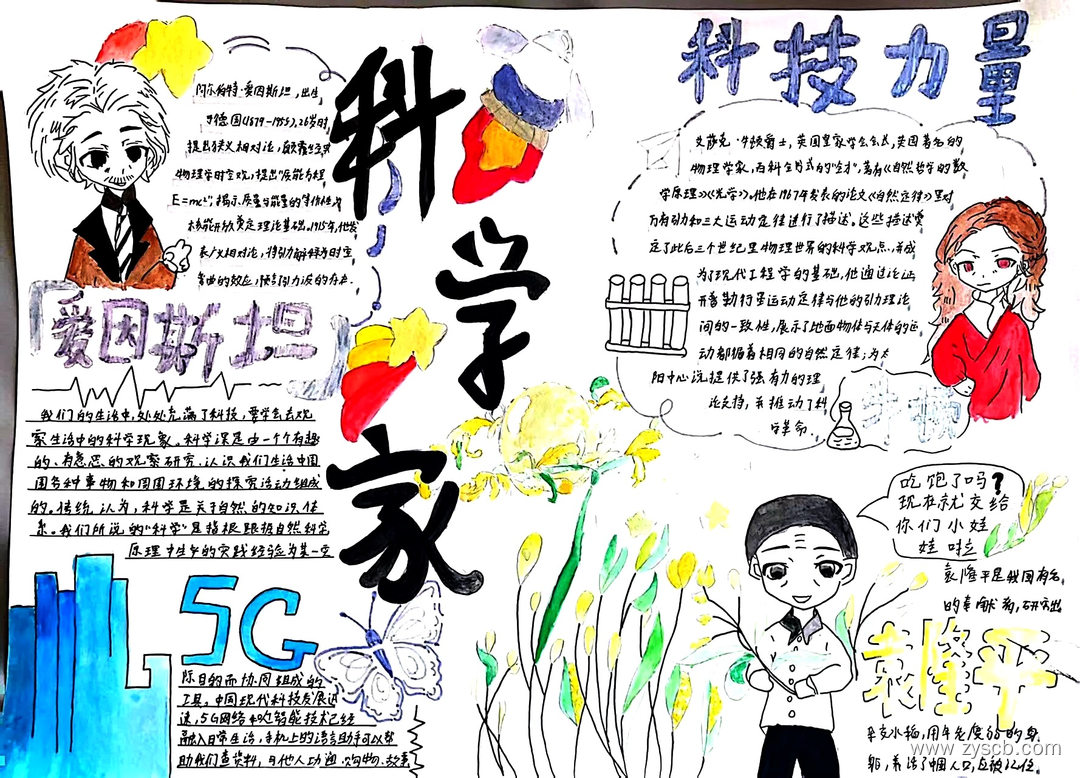 科学家
科技力量
阿尔伯特·爱因斯坦,出生
于德国(1879-1955),26岁时
提出狭义相对论,
物理学时空观,提出"质能方程
E=mc²",揭示质量与能量的等价性,
核能开放奠定理论基础。1915年,他发
表广义相对论,将引力解释为时空
弯曲的效应,预言引力波的存在.
爱因斯坦
我们的生活中,处处充满了科技,要学会去观
察生活中的科学现象。科学课是由一个个有趣
的、有意思的观察研究、认识我们生活中国
围各种事物和周围环境的探索活动组成
的。传统认为,科学是关于自然的知识体
系。我们所说的"科学"是指根据自然科学
原理中生乎的实践经验为某一实
5G
际目的而协同组成的
工具。中国现代科技发展迅
速,5G网络和智能技术已经
融入日常生活,手机上的语言助手可以帮
助我们查资料,与他人功通、购物、故事
艾萨克·牛顿爵士,英国皇家学会会长,英国著名的
物理学家,百科全书式的"全才",著有《自然哲学的数
学原理》《光学》。他在1967年发表的论文《自然定律》里对
万有引力和三大运动定律进行了描述。这些描述奠
定了此后三个世纪里物理世界的科学观点,并成
为了现代工程学的基础。他通过论证
开普勒行星运动定律与他的引力理论
间的一致性,展示了地面物体与天体的运
动都循着相同的自然定律;为太
阳中心说提供了强有力的理
论支持,并推动了科
学革命。
牛顿
吃饱了吗?
现在就交给
你们小娃
娃啦
袁隆平是我国有名
的贡献者,研究出
袁隆平
杂交水稻,用年老度弱的身
躯,养活了中国人口,应被记住。
www.zyscb.com